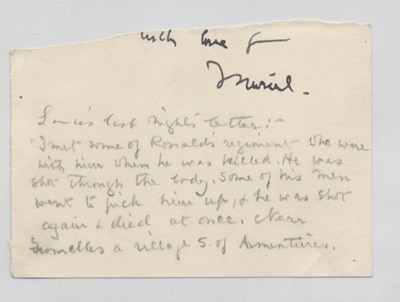 with love fr
Muriel.
last night's letter:-
"I met some of Ronald's regiment who were
with him when he was killed. He was
shot through the body. Some of his men
went to pick him up, & he was shot
again & died at once. Near
Fromelles a village S. of Armentières.